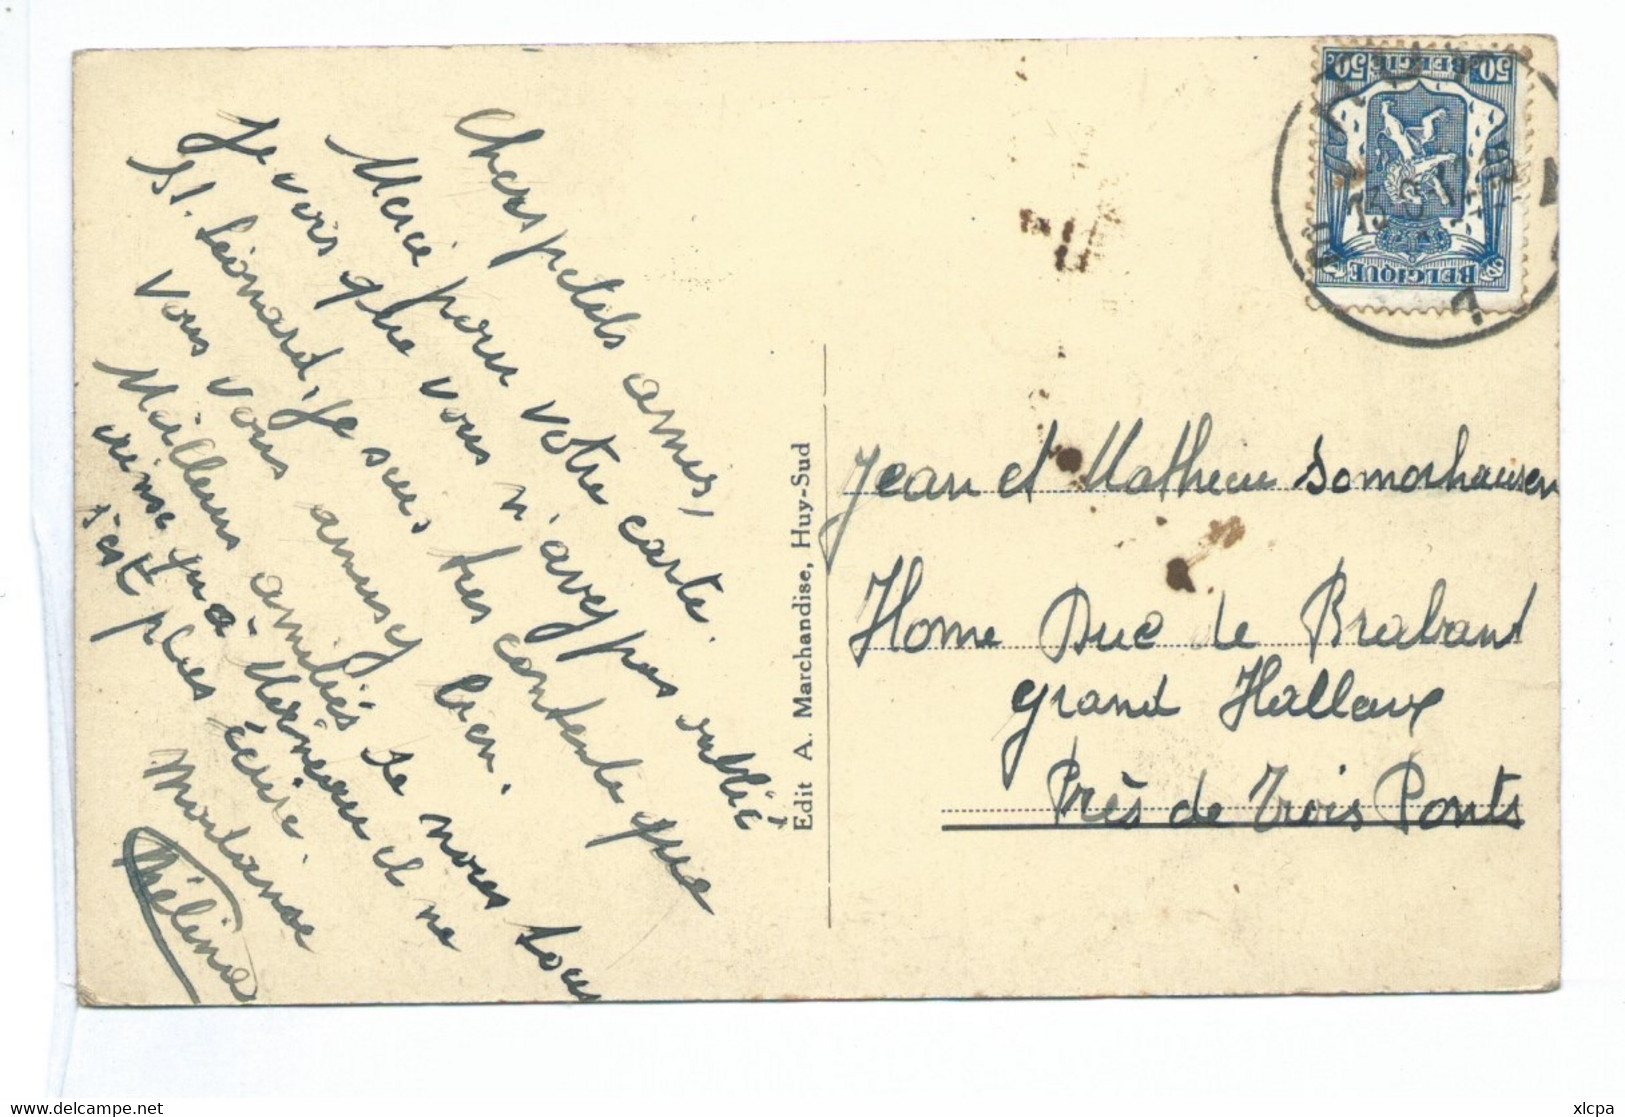 Chers petits amis,
Merci pour votre carte.
Je vois que vous n'avez pas oublié
St. Léonard, je suis très contente que
vous vous amusez bien.
Meilleurs amitiés de nous tous
ainsi qu'à Marineau et ne
plus écrire.
Madame
Mélina
Edit A. Marchandise, Huy-Sud
50c BELGIE 50c
BELGIQUE
Jean et Mathieu Somorhausen
Home Duc de Brabant
Grand Halleux
Près de Trois Ponts
xlcpa